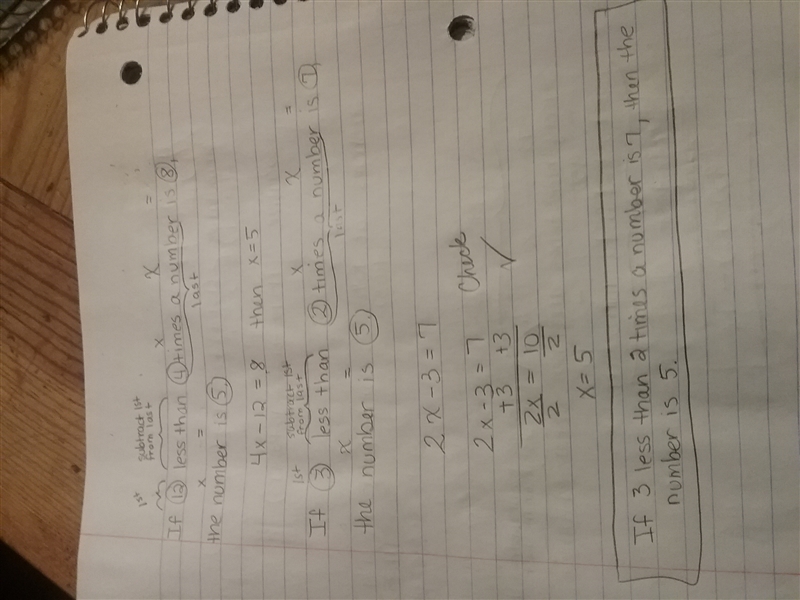 1st subtract 1st
from last x x =
If 12 less than 4 times a number is 8,
x = last
the number is 5.
4x - 12 = 8 then x = 5
1st subtract 1st
from last x x =
If 3 less than 2 times a number is 7,
x =
the number is 5.
2x - 3 = 7
Check
2x - 3 = 7 ✓
+3 +3
2x = 10
2 2
x = 5
If 3 less than 2 times a number is 7, then the
number is 5.